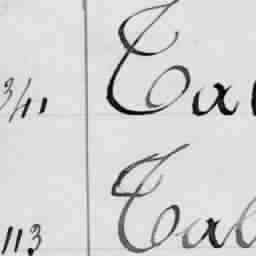 341 Tal
113 Tal